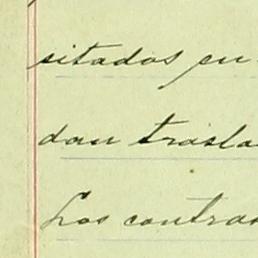 sitados en
dan trasla
Los contra